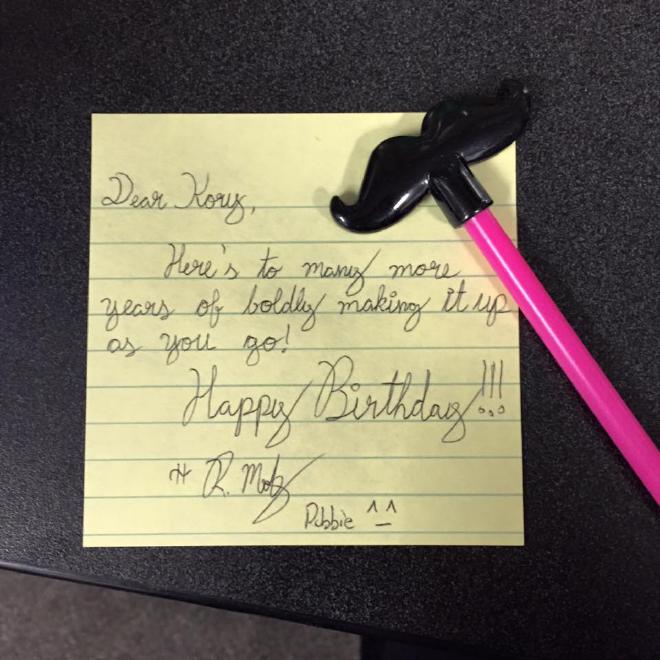 Dear Kory,
Here's to many more
years of boldly making it up
as you go!
Happy Birthday!!!
R. Motz
Robbie ^_^